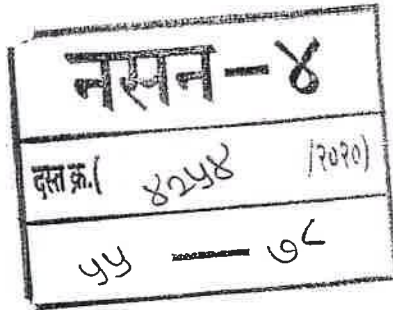 नसन-४
दस्त क्र.( ४२५४ /२०२०)
५५ — ७८